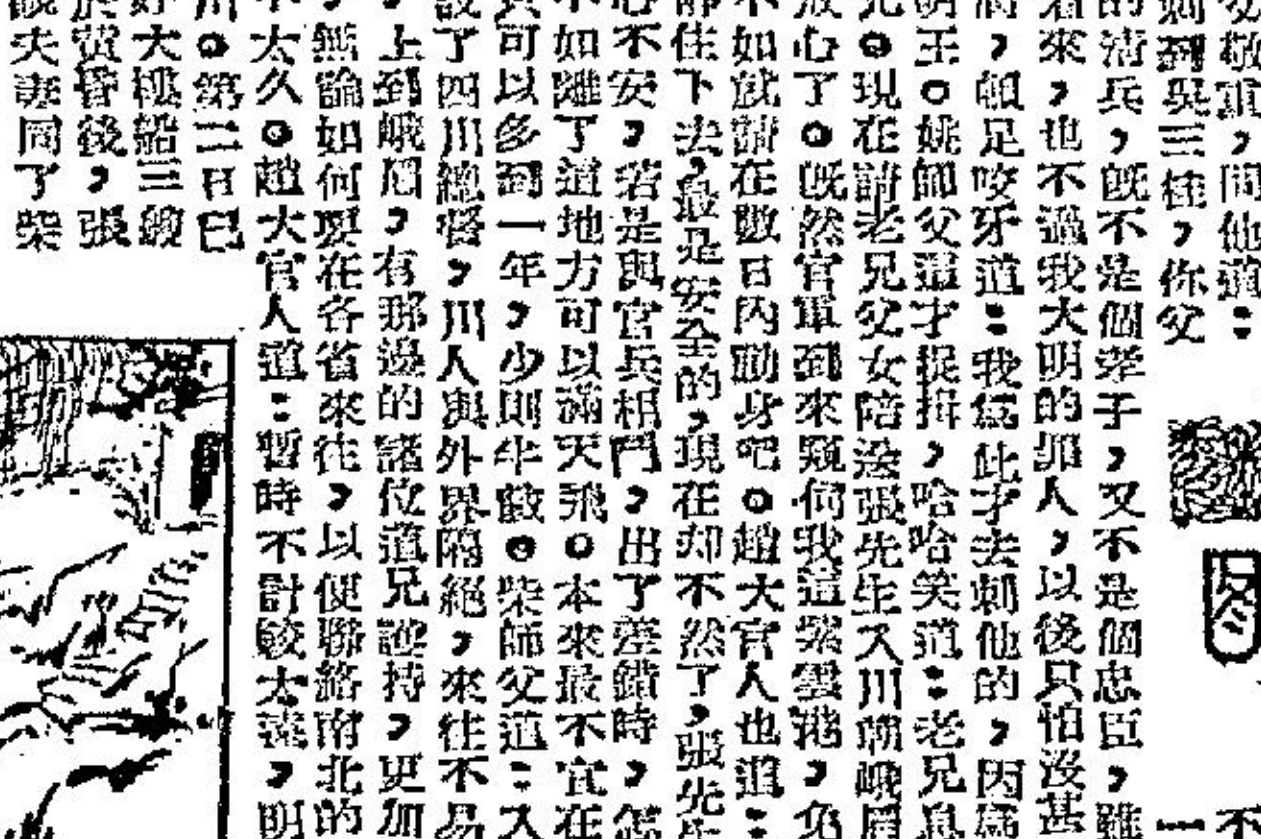 敬軍,問他道:
刺到吳三桂,你父
的清兵,既不是個孝子,又不是個忠臣,雖
着來,也不過我大明的罪人,以後只怕沒甚
頓足咬牙道:我爲此才去刺他的,因爲
明王。姚師父這才捉揖,哈哈笑道:老兄息
現在請老兄父女陪送張先生入川朝峨眉
放心了。既然官軍到來窺伺我這紫雲港,免
不如就請在數日內動身吧。趙大官人也道:
靜住下去,最是安全的,現在却不然了,張先生
心不安,若是與官兵相鬥,出了差錯時,怎
不如離了這地方可以滿天飛。本來最不宜在
可以多到一年,少則半載。柴師父道:入
設了四川總督,川人與外界隔絕,來往不易
上到峨眉,有那邊的諸位道兄護持,更加
無論如何要在各省來往,以便聯絡南北的
不太久。趙大官人道:暫時不計較太遠,明
川。第二日已
大樓船三艘
於黃昏後,張
夫妻同了柴